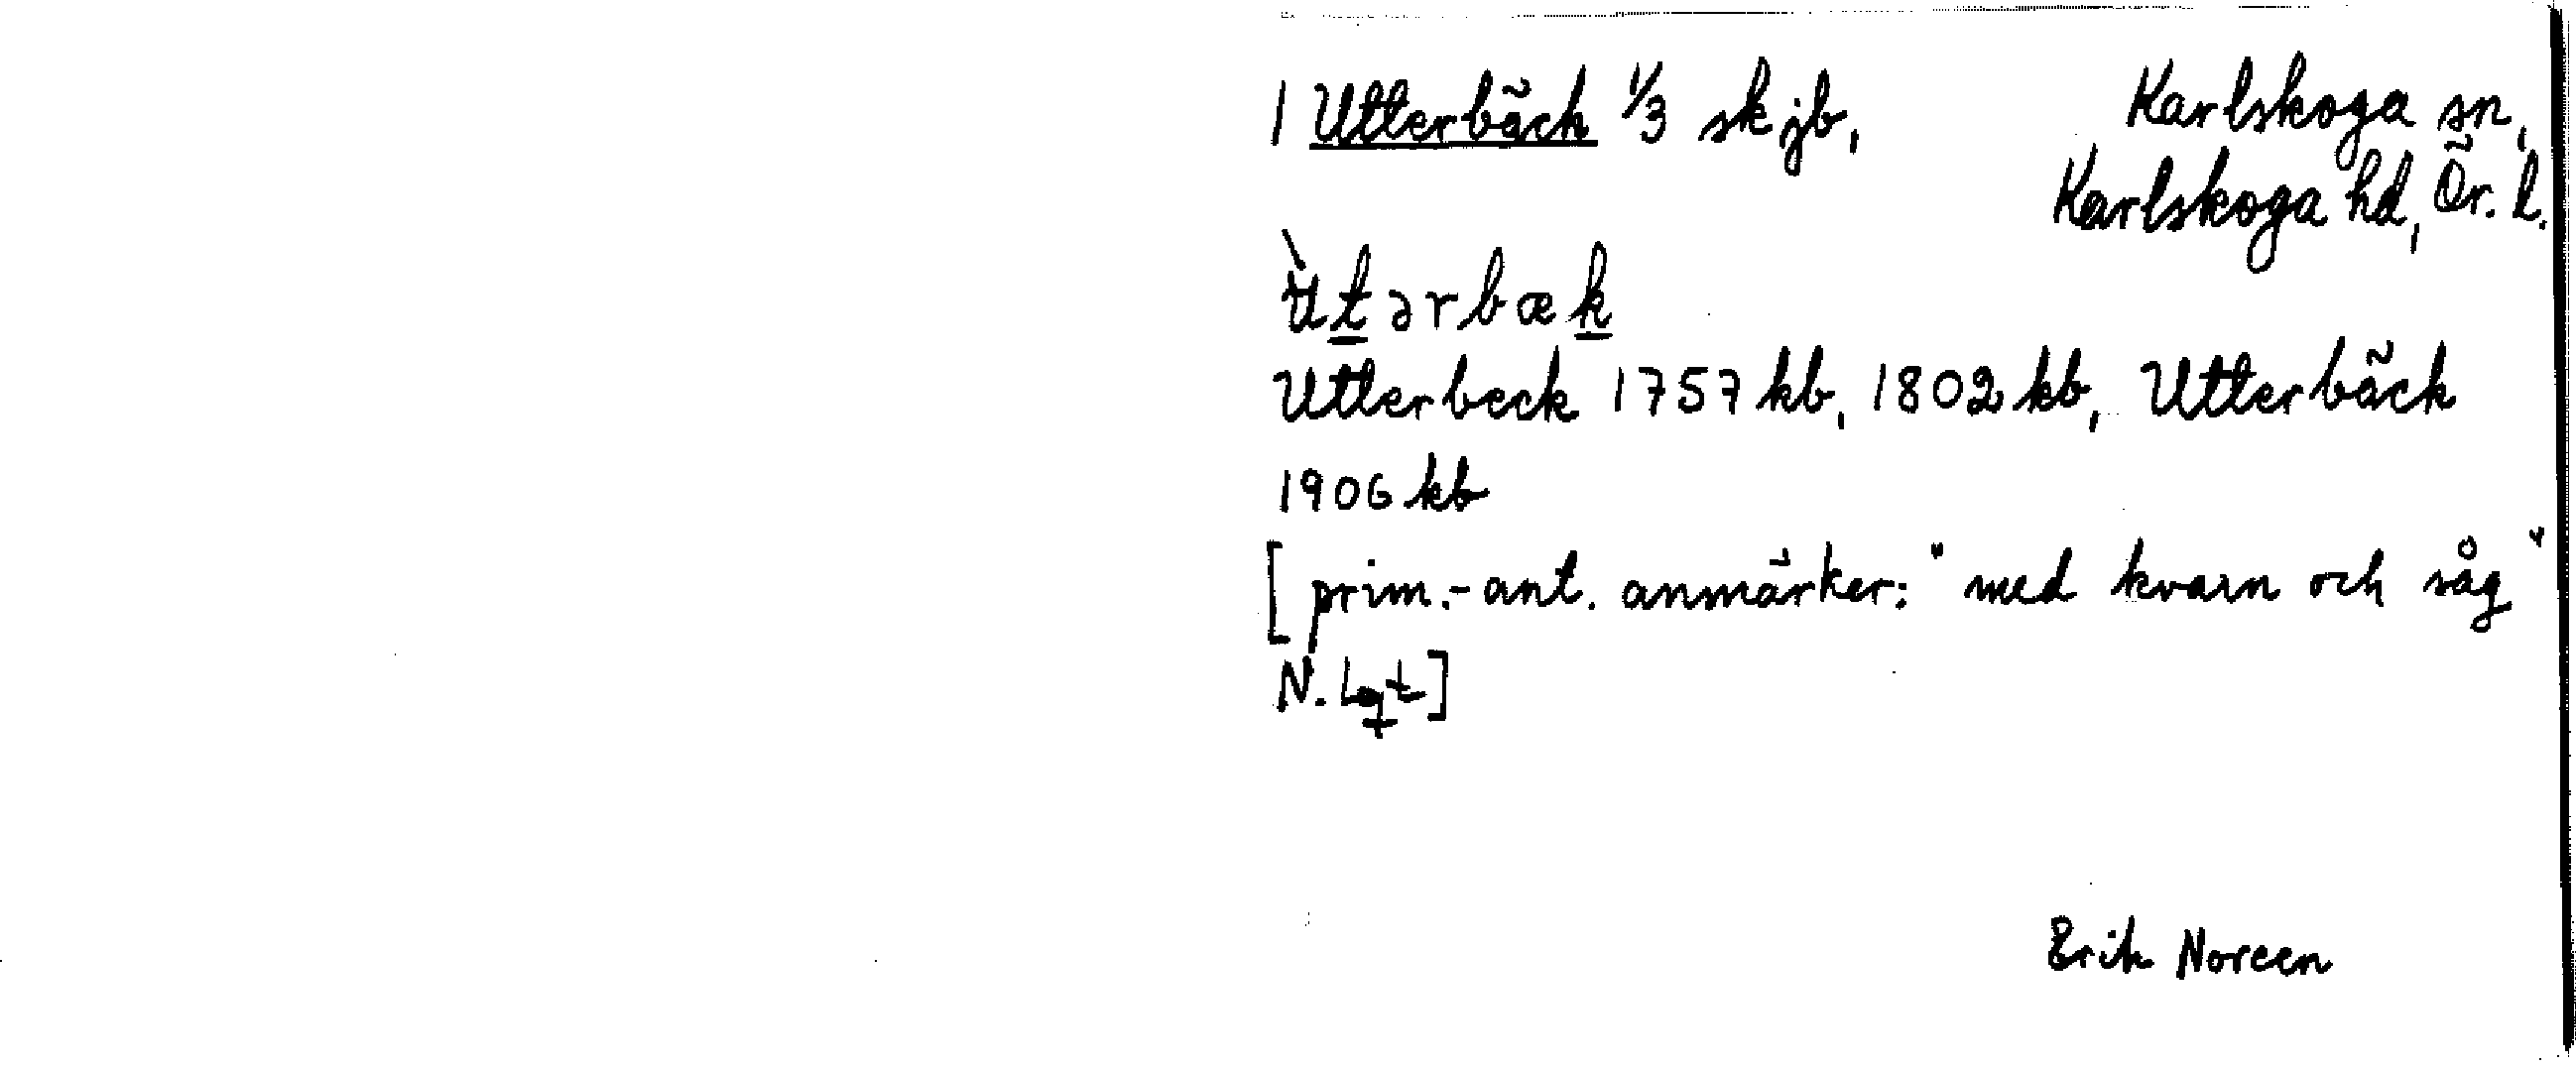 1 Utterbäck 1/3 skjb, Karlskoga sn,
Karlskoga hd, Ör. l.
ùtərbæk
Utterbeck 1757 kb, 1802 kb, Utterbäck
1906 kb
[prim.-ant. anmärker: "med kvarn och såg"
N. Lqt]
Erik Noreen